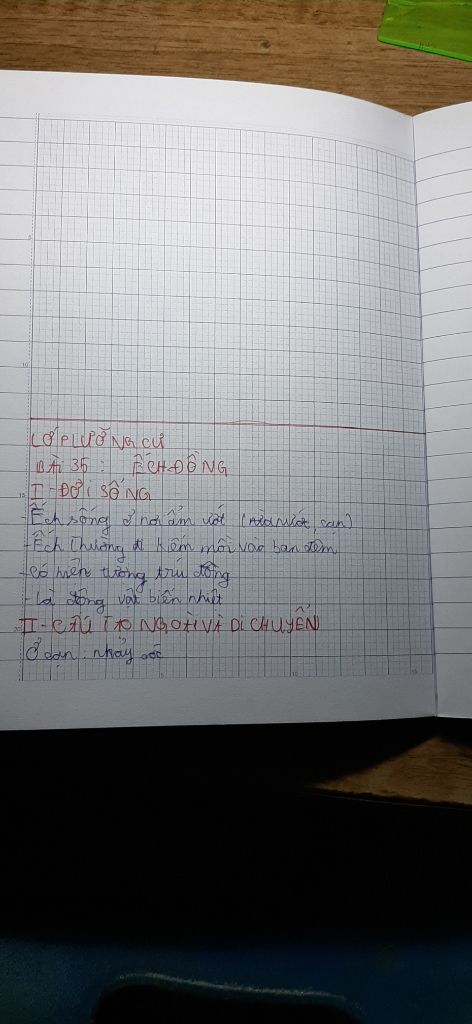 LỚP LƯỠNG CƯ
BÀI 35: ẾCH ĐỒNG
I - ĐỜI SỐNG
Ếch sống ở nơi ẩm ướt (nửa nước, cạn)
- Ếch thường đi kiếm mồi vào ban đêm
- có hiện tượng trú đông
- Là động vật biến nhiệt
II - CẤU TẠO NGOÀI VÀ DI CHUYỂN
Ở cạn: nhảy cóc